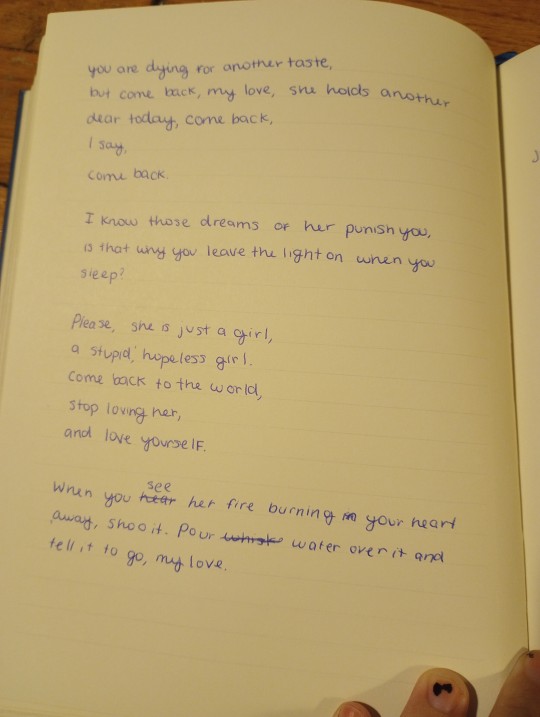 you are dying for another taste,
but come back, my love, she holds another
dear today, come back,
I say,
come back.
I know those dreams of her punish you,
is that why you leave the light on when you
sleep?
Please, she is just a girl,
a stupid, hopeless girl.
Come back to the world,
stop loving her,
and love yourself.
When you see her fire burning your heart
away, shoo it. Pour water over it and
tell it to go, my love.